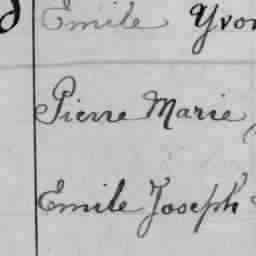 Emile Yvon
Pierre Marie,
Emile Joseph